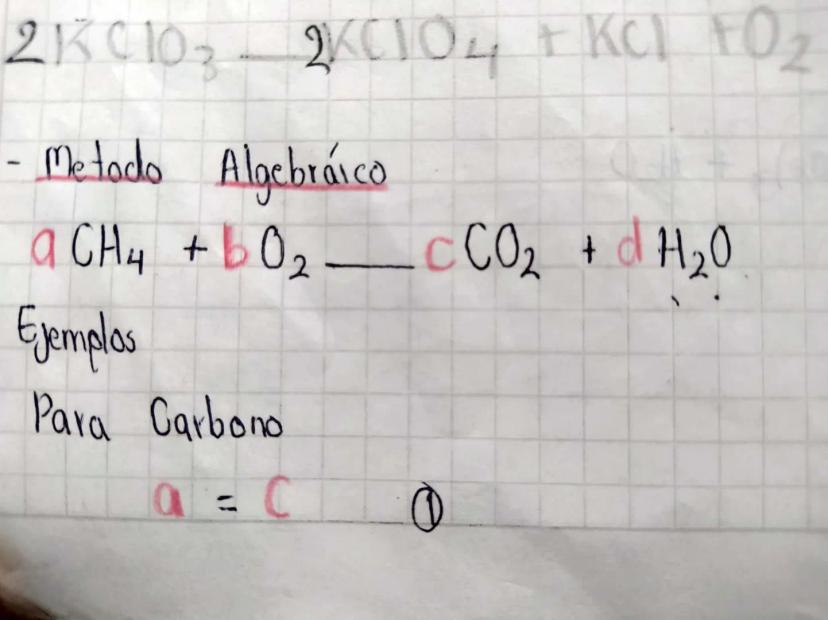 2KClO₃ — 2KClO₄ + KCl + O₂
- Metodo Algebráico
a CH₄ + b O₂ — c CO₂ + d H₂O
Ejemplos
Para Carbono
a = c ①